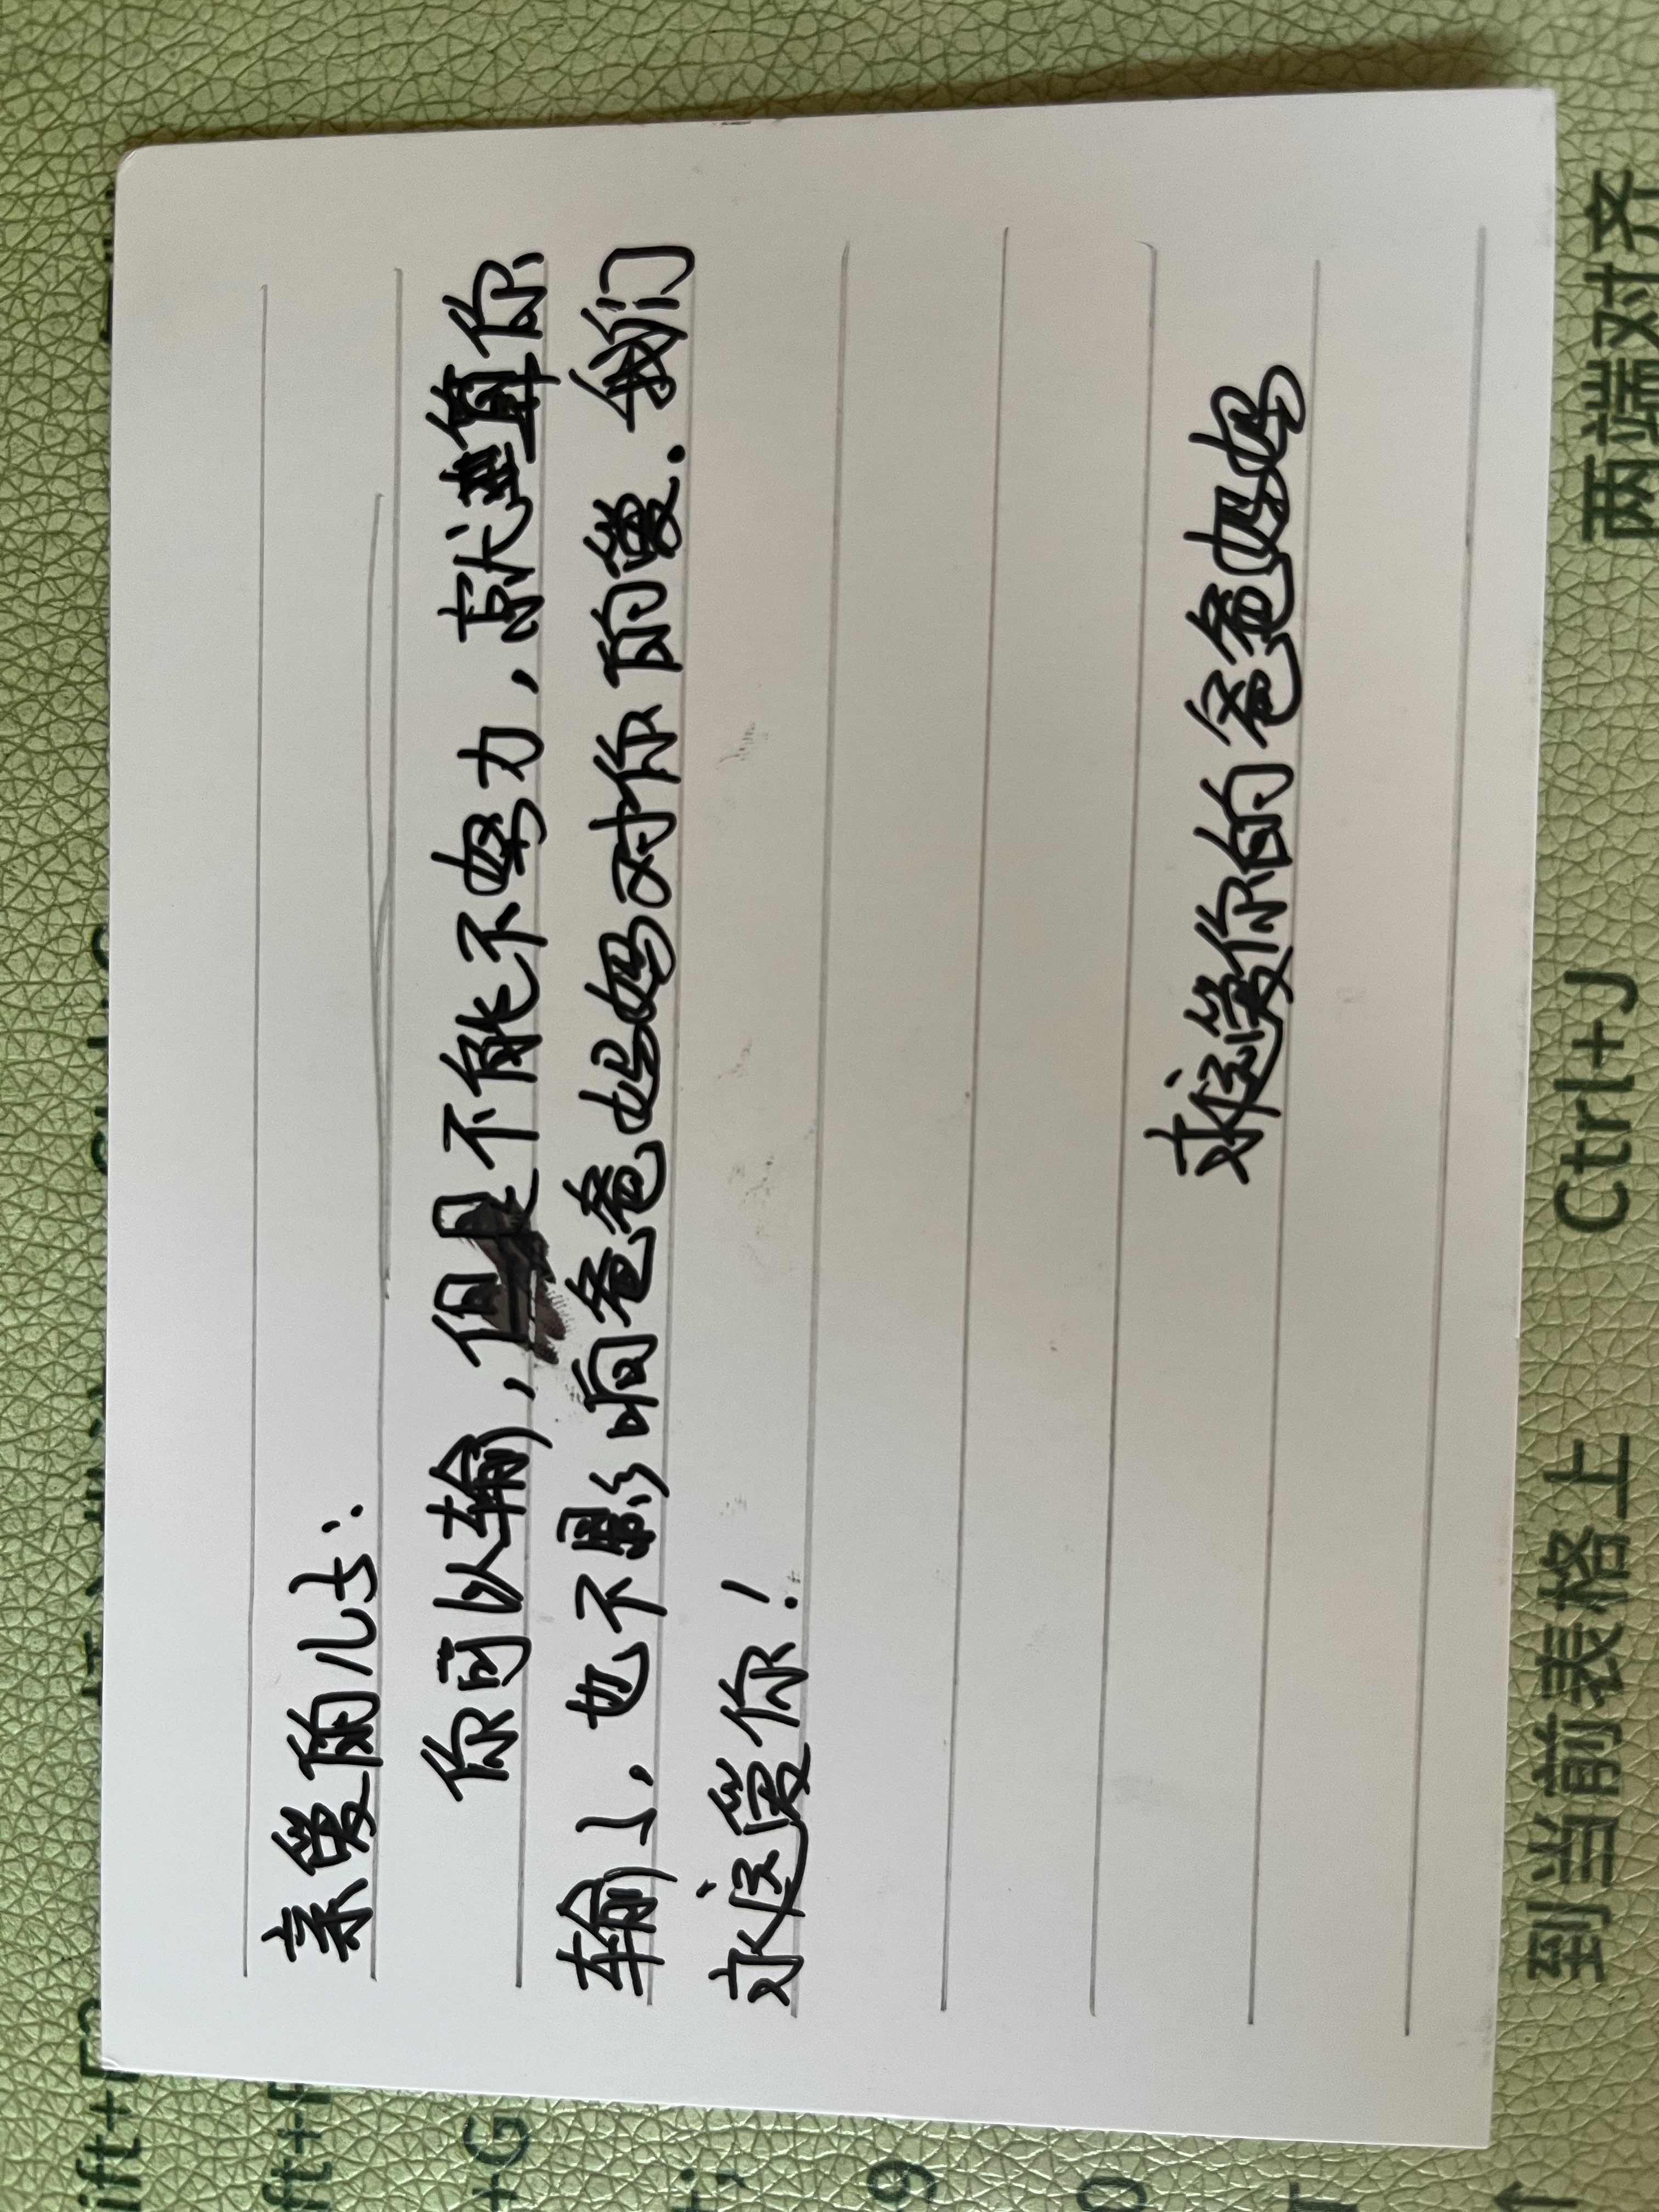 亲爱的儿子:
你可以输,但是不能不努力,就算你
输了,也不影响爸爸妈妈对你的爱.我们
永远爱你!
永远爱你的爸爸妈妈
+G
9
0
到当前表格上 Ctrl+J 两端对齐